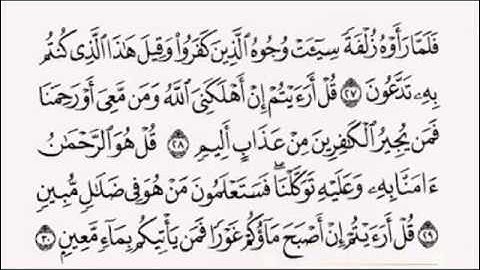 فَلَمَّا رَأَوْهُ زُلْفَةً سِيٓـَٔتْ وُجُوهُ ٱلَّذِينَ كَفَرُوا۟ وَقِيلَ هَٰذَا ٱلَّذِى كُنتُم
بِهِۦ تَدَّعُونَ ٢٧ قُلْ أَرَءَيْتُمْ إِنْ أَهْلَكَنِىَ ٱللَّهُ وَمَن مَّعِىَ أَوْ رَحِمَنَا
فَمَن يُجِيرُ ٱلْكَٰفِرِينَ مِنْ عَذَابٍ أَلِيمٍ ٢٨ قُلْ هُوَ ٱلرَّحْمَٰنُ
ءَامَنَّا بِهِۦ وَعَلَيْهِ تَوَكَّلْنَا ۖ فَسَتَعْلَمُونَ مَنْ هُوَ فِى ضَلَٰلٍ مُّبِينٍ
٢٩ قُلْ أَرَءَيْتُمْ إِنْ أَصْبَحَ مَآؤُكُمْ غَوْرًا فَمَن يَأْتِيكُم بِمَآءٍ مَّعِينٍۭ ٣٠